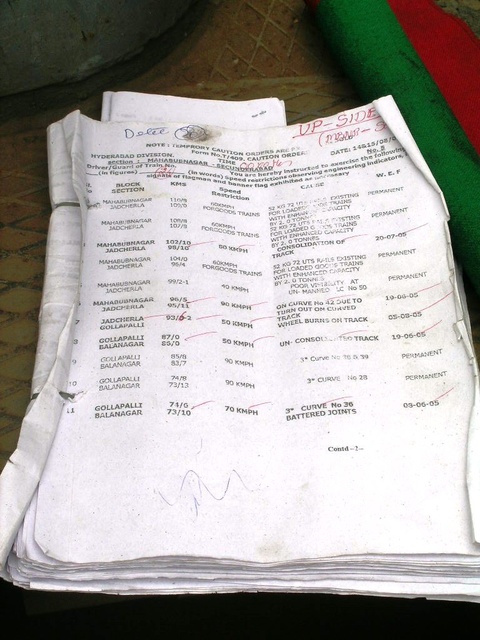 UP-SIDE
NOTE : TEMPRORY CAUTION ORDERS ARE
Form No.T/409, CAUTION ORDER
DATE: 14&15/08/
HYDERABAD DIVISION.
No. 8
section : MAHABUBNAGAR - SECUNDERABAD
TIME
Driver/Guard of Train No.
You are hereby instructed to exercise the following
(in figures) (in words) Speed restrictions observing engineering indicators,
signals of flagmen and banner flag exhibited as necessary
BLOCK SECTION KMS Speed Restriction CAUSE W.E.F
MAHABUBNAGAR 110/9 60KMPH 52 KG 72 UTS RAILS EXISTING PERMANENT
JADCHERLA FORGOODS TRAINS FOR LOADED GOODS TRAINS
WITH ENHANCED CAPACITY
BY 2.0 TONNES
MAHABUBNAGAR 108/8 60KMPH 52 KG 72 UTS RAILS EXISTING PERMANENT
JADCHERLA 107/9 FORGOODS TRAINS FOR LOADED GOODS TRAINS
WITH ENHANCED CAPACITY
BY 2.0 TONNES
MAHABUBNAGAR 102/10 50 KMPH CONSOLIDATION OF 20-07-05
JADCHERLA TRACK
MAHABUBNAGAR 104/0 60KMPH 52 KG 72 UTS RAILS EXISTING PERMANENT
JADCHERLA 96/4 FORGOODS TRAINS FOR LOADED GOODS TRAINS
WITH ENHANCED CAPACITY
BY 2.0 TONNES
MAHABUBNAGAR 99/2-1 40 KMPH POOR VISIBILITY AT PERMANENT
JADCHERLA UN-MANNED LC No 50
MAHABUBNAGAR 96/5 90 KMPH ON CURVE No 42 DUE TO 19-08-05
JADCHERLA 95/11 TURN OUT ON CURVED
TRACK
JADCHERLA 93/6-2 50 KMPH WHEEL BURNS ON TRACK 05-08-05
GOLLAPALLI
8 GOLLAPALLI 87/0 50 KMPH UN- CONSOLIDATED TRACK 19-06-05
BALANAGAR 86/0
9 GOLLAPALLI 85/8 90 KMPH 3° Curve No 38 & 39 PERMANENT
BALANAGAR 83/7
10 GOLLAPALLI 74/8 90 KMPH 3° CURVE No 28 PERMANENT
BALANAGAR 73/13
11 GOLLAPALLI 74/6 70 KMPH 3° CURVE No 36 08-06-05
BALANAGAR 73/10 BATTERED JOINTS
Contd--2--